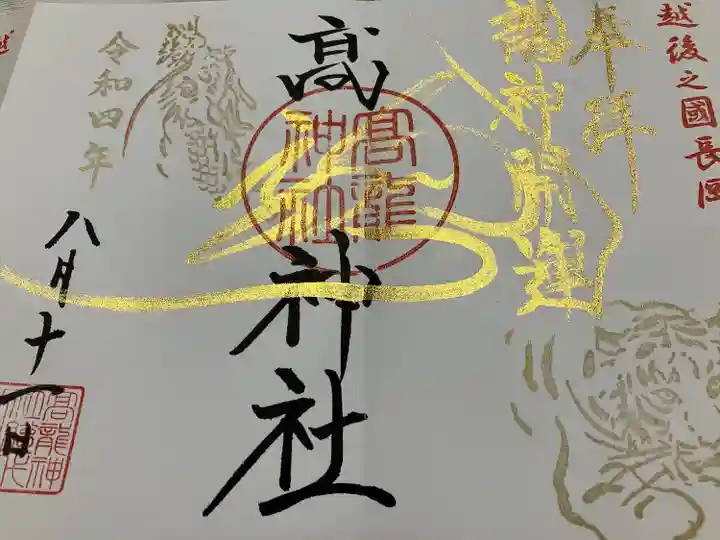 越後之國長岡
奉拝
龍神開運
髙神社
高龍
神社
令和四年
八月十一日
高龍神
越